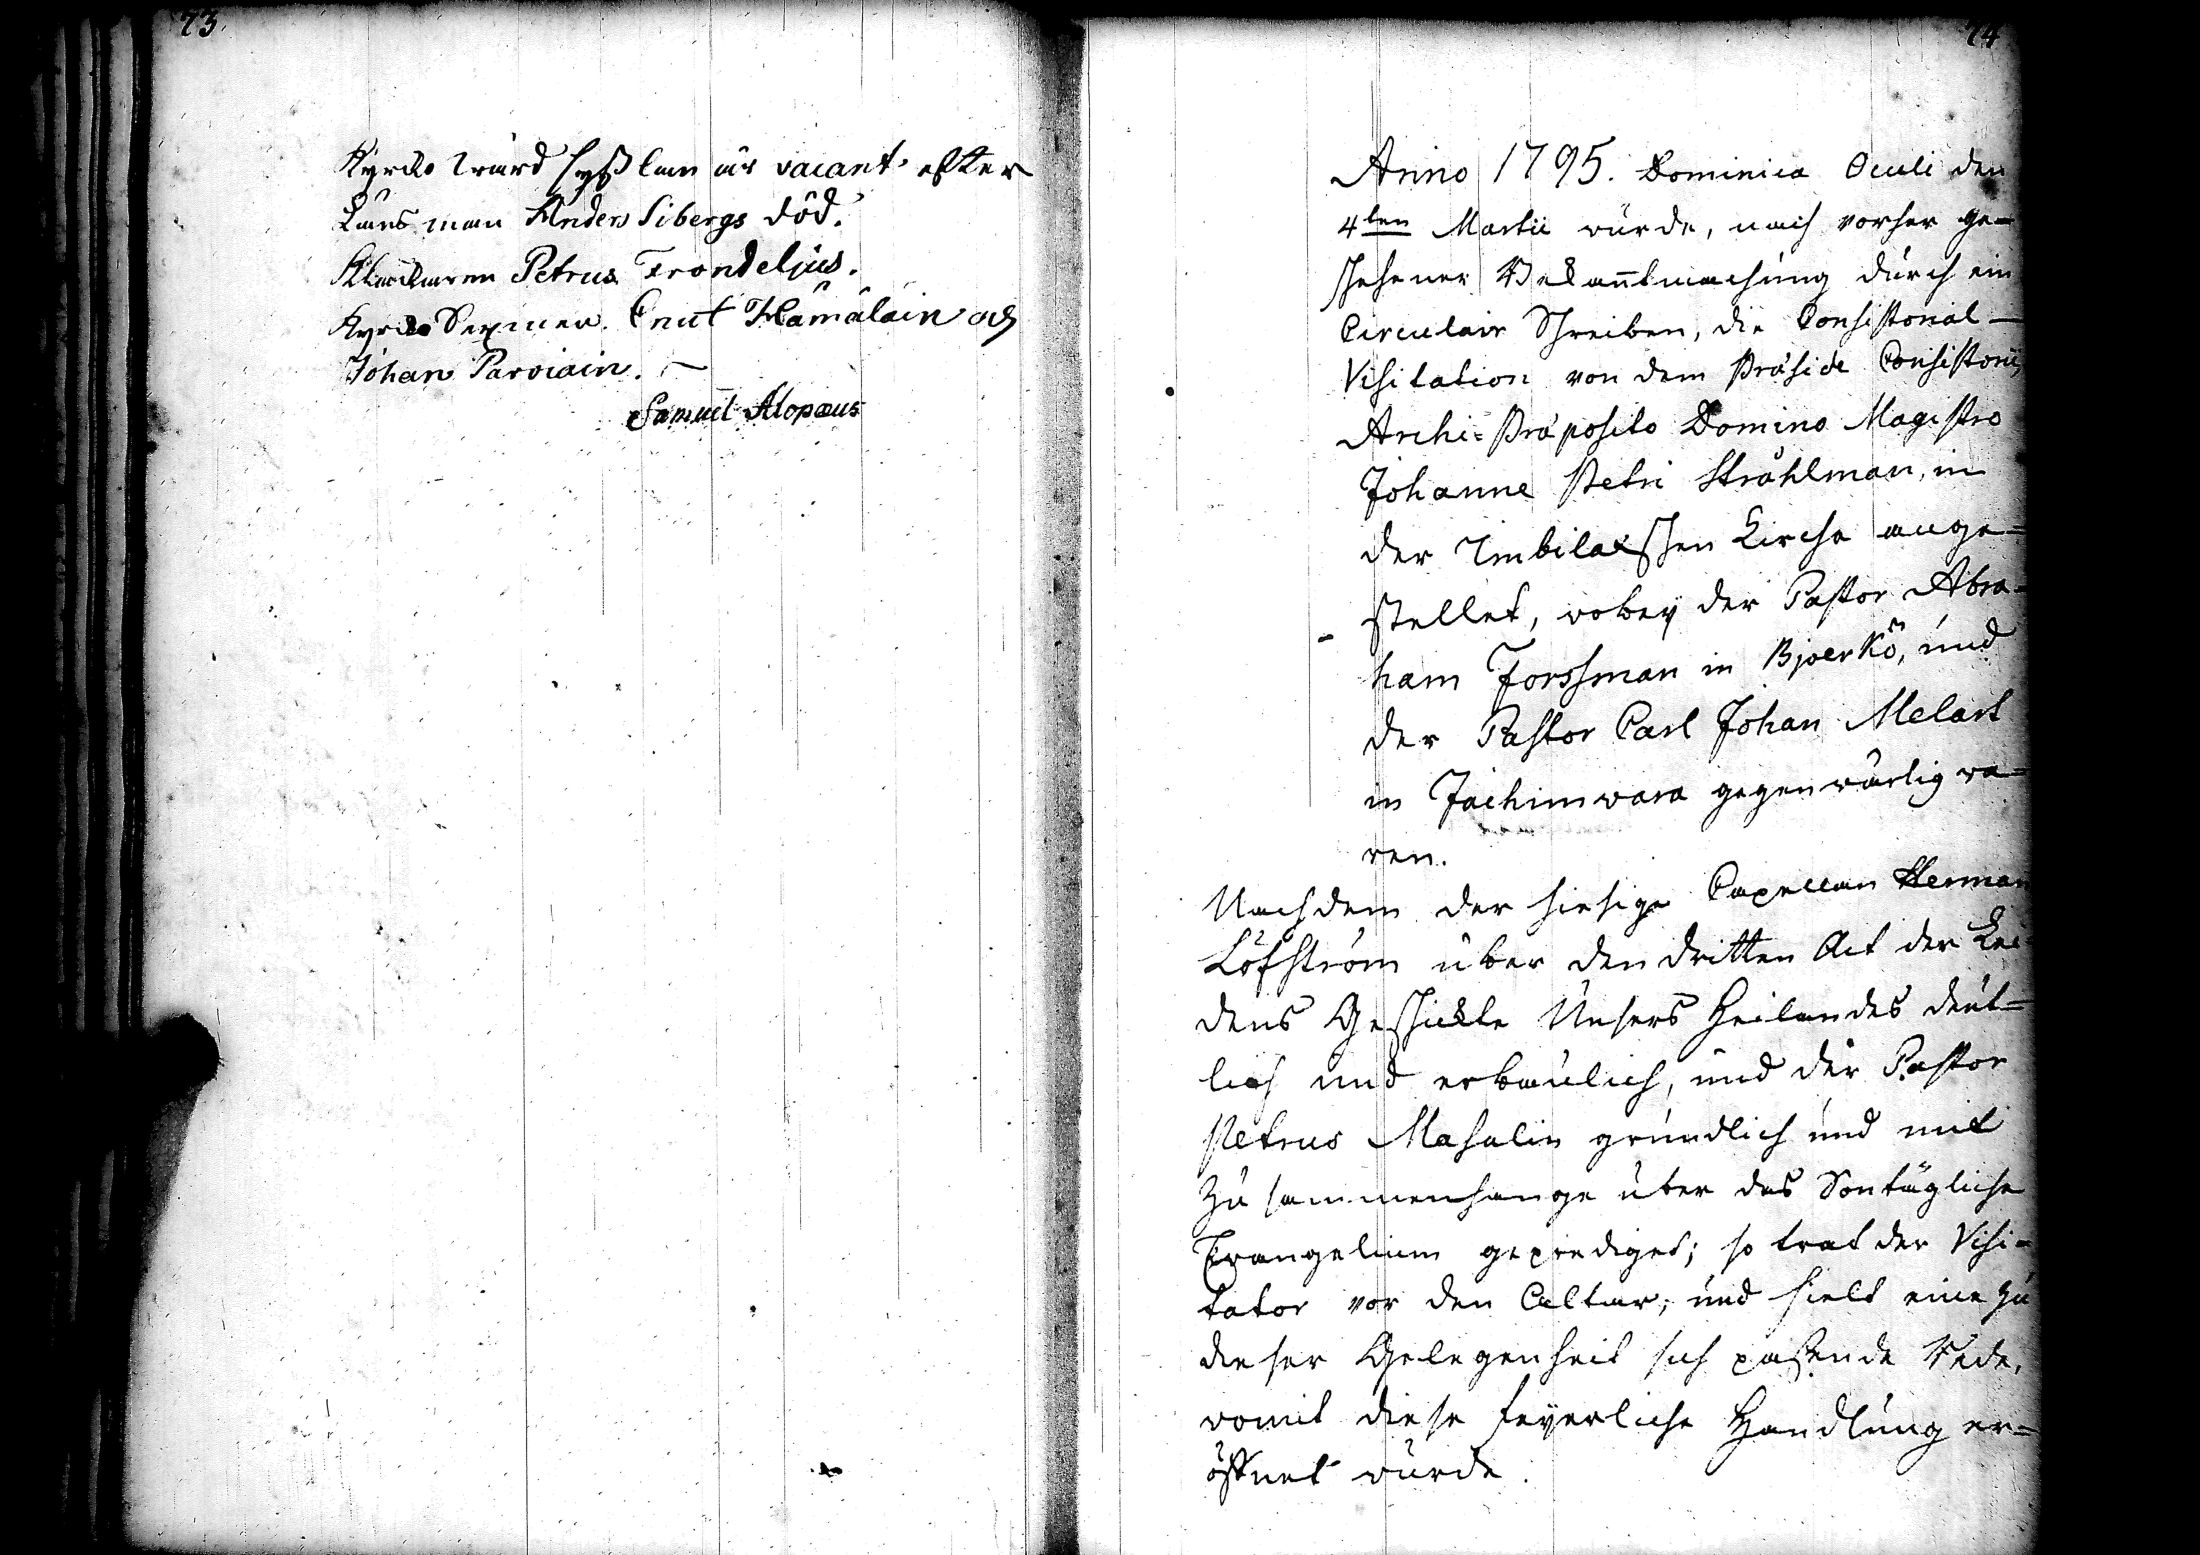 73
Kyrcko wärd sysslan är vacant efter
Länsman Anders Sibergs död.
Klockaren Petrus Frondeljus.
Kyrcko Sexmen. Cnut Hämäläin och
Johan Parviain. —
Samuel Alopæus
74
Anno 1795. Dominica Oculi den
4ten Martii wurde, nach vorher ge=
schehener Bekanntmachung durch ein
Circulair Schreiben, die Consistorial—
Visitation von dem Präside Consistorii,
Archi=Präposito Domino Magistro
Johanne Petri Stråhlman, in
der Imbilaxschen Kirche ange=
stellet, wobey der Pastor Abra=
ham Forssman in Bjoerkö, und
der Pastor Carl Johan Melart
in Jachimwara gegenwärtig wa=
ren.
Nachdem der hiesige Capellan Herman
Löfström über den dritten Act der Lei
dens Geschickte Unsers Heilandes deut=
lich und erbaulich, und der Pastor
Petrus Masalin gründlich und mit
Zusammenhange über das Sontägliche
Evangelium geprediget; so trat der Visi=
tator vor den Altar, und hielt eine zu
dieser Gelegenheit sich paßende Rede,
womit diese feyerliche Handlung er=
öffnet wurde.